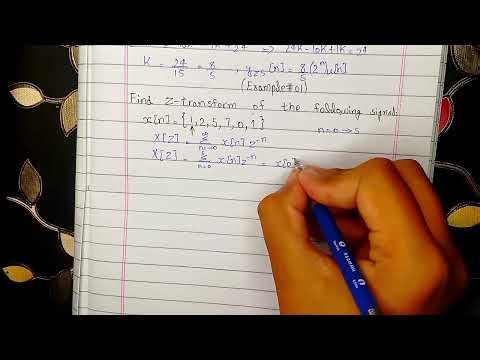 K = 24/15 = 8/5 , yzs[n] = 8/5 (2^n) u[n]
(Example#01)
Find Z-transform of the following signal:
x[n] = {1, 2, 5, 7, 0, 1}
↑
n=0→5
X[Z] = ∞Σn=-∞ x[n] z^-n
X[Z] = 5Σn=0 x[n] z^-n = x[0]